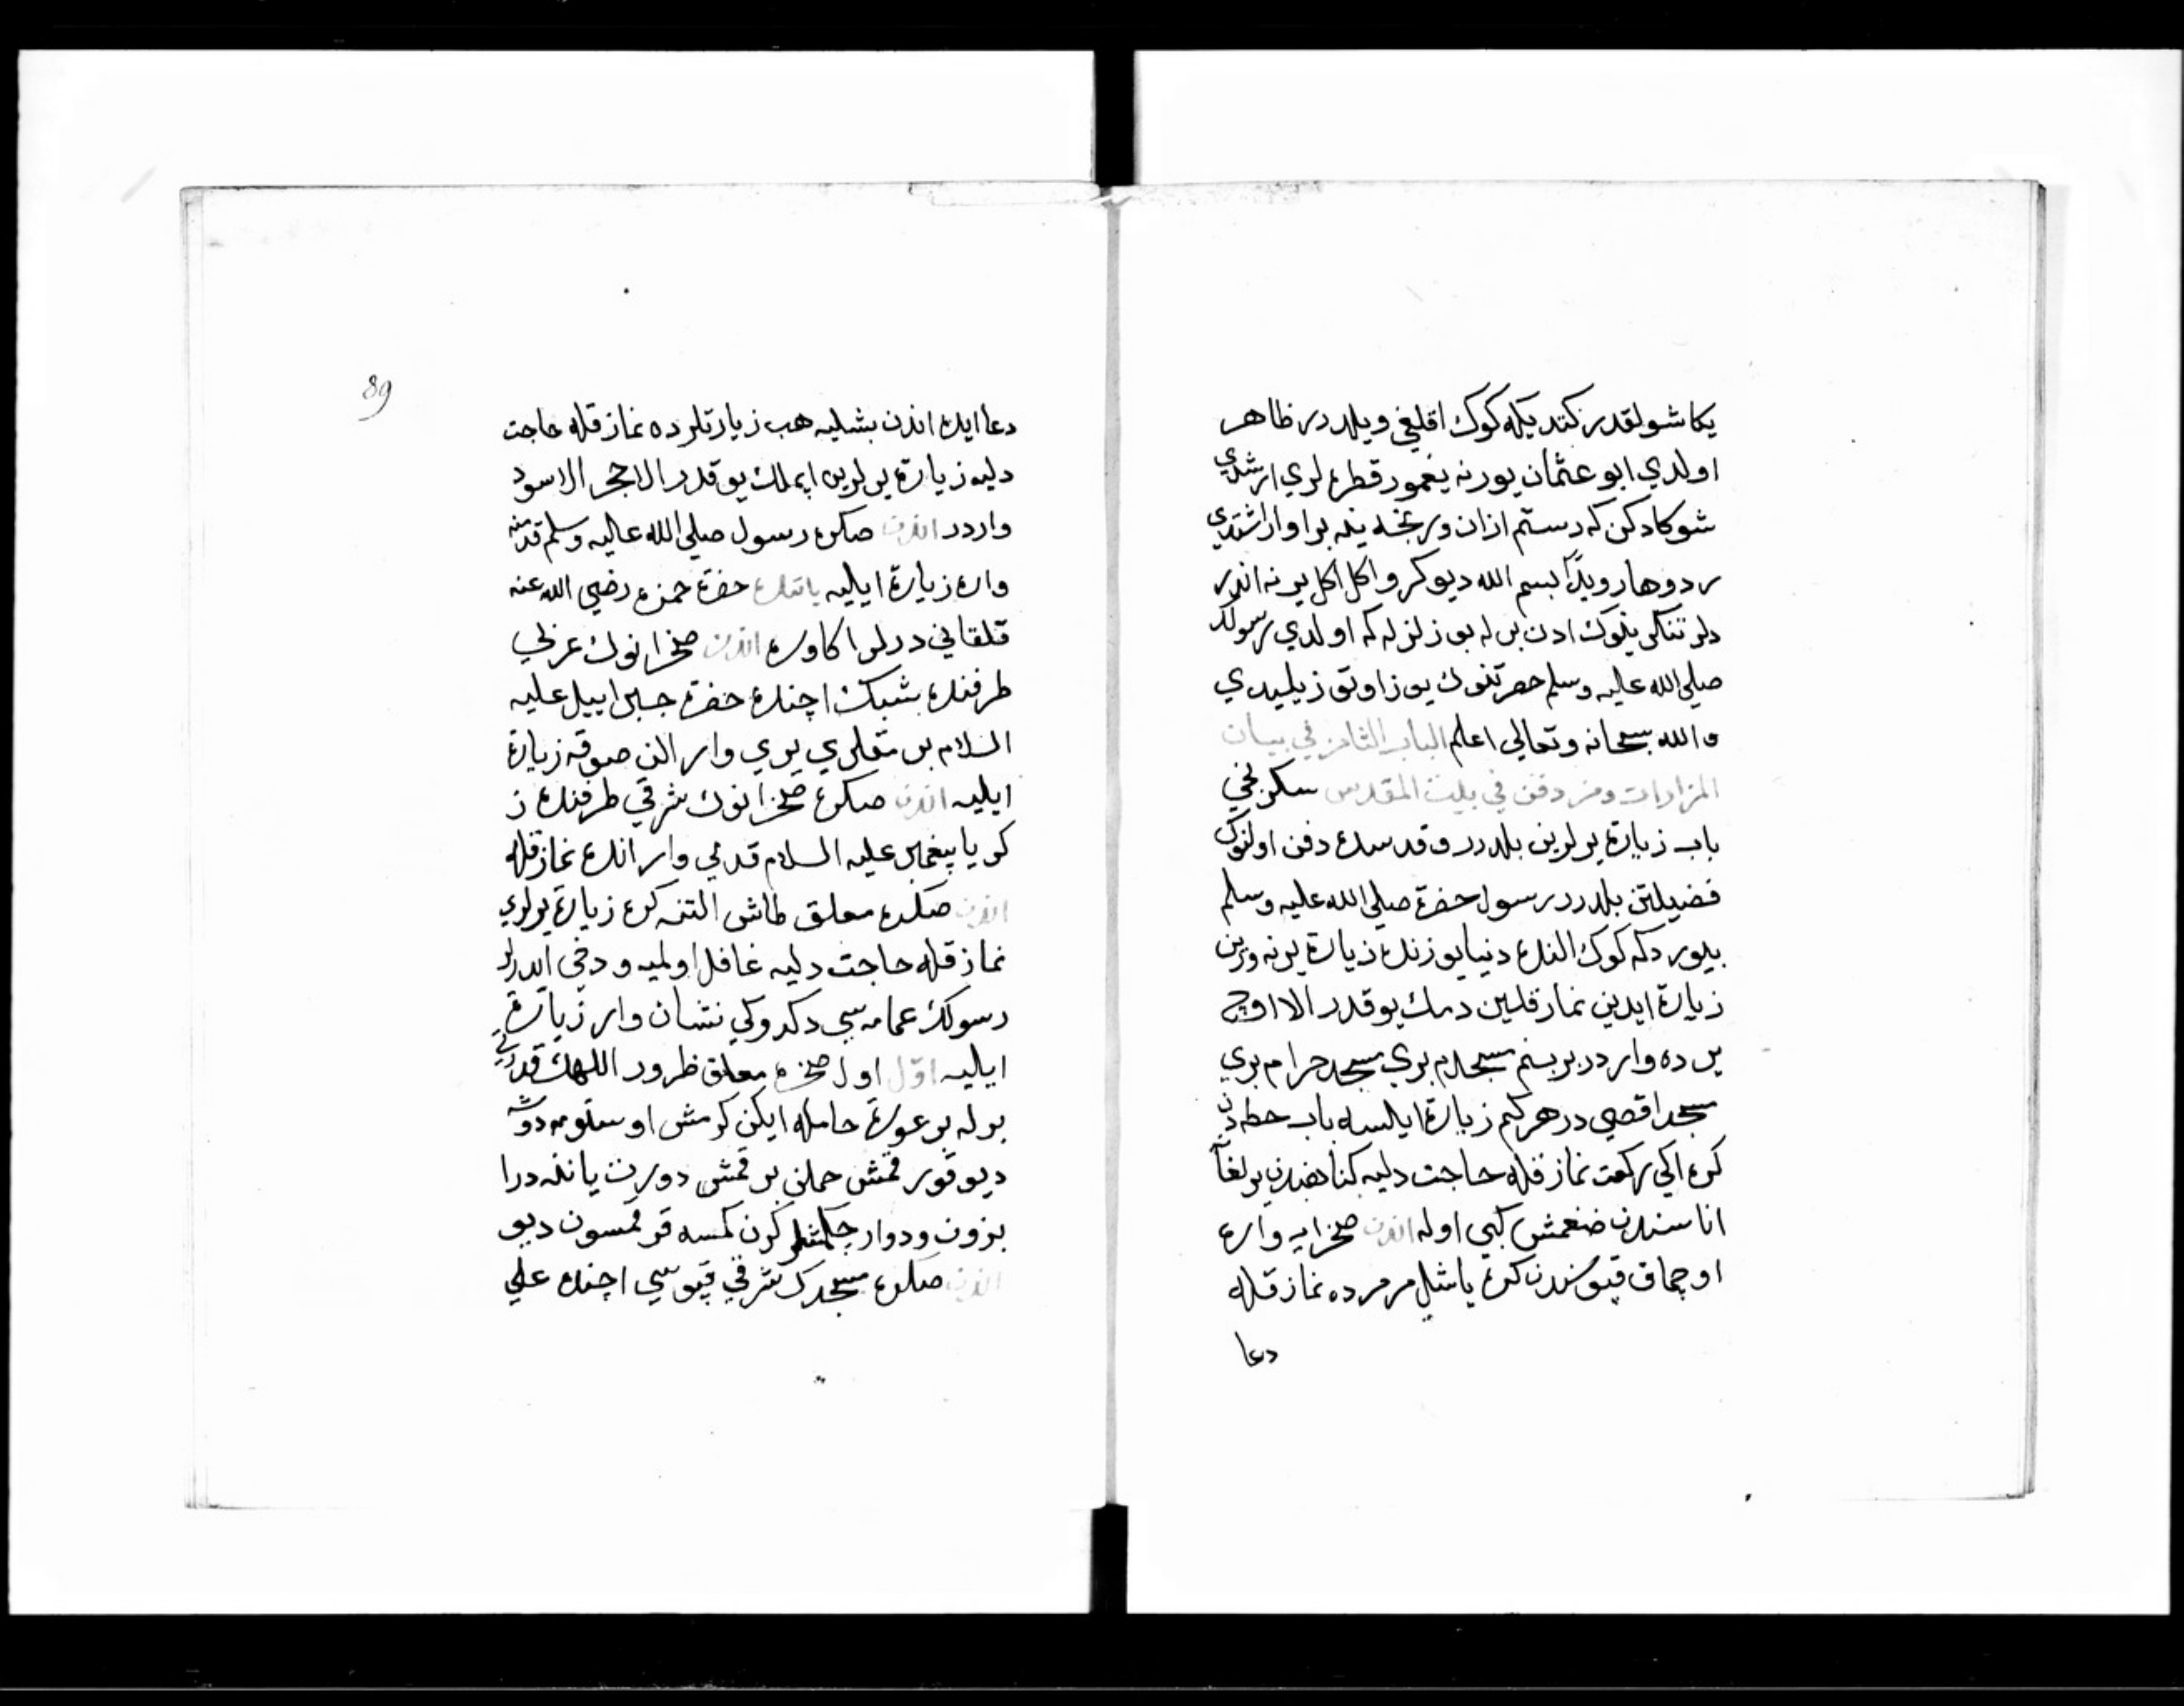 يكا شولقدر كتديكه كوك اقلغي ويلدرر ظاهر
اولدي ابو عثمان يورنه يغمور قطره لري ارشدي
شوكادكن كه دستم ازان وريخه ينه براواز اشتدي
دوها رويدًا بسم الله ديو كرو اكل اكل يرنه اندر
دلر تنكري بلوك ادن بر له بو زلزله كه اولدي رسولك
صلي الله عليه وسلم حضرتنوك يوز اوتوز ييليدي
والله سبحانه وتعالي اعلم الباب الثامن في بيان
المزارات ومن دفن في بيت المقدس سكزنجي
باب زيارة يرلرين بلدرر وقدسده دفن اولنوك
فضيلتن بلدرر رسول حضرة صلي الله عليه وسلم
بيورد كه كوك التنده دنيا يوزنده زيارة يرنه ورين
زيارة ايدين نماز قلين دمك يوقدر الا اوچ
يرده واردر بر بنم مسجدم بري مسجد حرام بري
مسجد اقصي در هر كيم زيارة ايلسه باب حطه دن
كره اكي ركعت نماز قله حاجت دليه كناهندن يرلغا
اناسندن ضغمش كبي اوله اندن صخرايه واره
اوچماق قپوسندن كره ياشل مرمرده نماز قله
دعا
89
دعا ايده اندن بشليه هب زيارتلرده نماز قله حاجت
دليه زيارة يرلرين ايملك يوقدر الا حجر الاسود
واردر اندن صكره رسول صلي الله عليه وسلم قدمنه
واره زيارة ايليه ياننده حضرة حمزه رضي الله عنه
قلقاني درلر اكا وره اندن صخرانوك غربي
طرفنده شبك اچنده حضرة جبراييل عليه
السلام بر مقلري يري وار الن صوقه زيارة
ايليه اندن صكره صخرانوك شرقي طرفنده ز
كريا پيغمبر عليه السلام قدمي وار انده نماز قله
اندن صكره معلق طاش التنه كره زيارة يرلري
نماز قله حاجت دليه غافل اولميه ودخي اندرلر
رسولك عمامه سي دكدوكي نشان وار زيارة
ايليه اوّل اول صخره معلق ظرور اللهك قدرتي
برله بر عورة حامله ايكن كرمش اوستومه دوشه
ديو قورقمش حملني برقمش دورت ياننه درا
بزون ودوار چكمشلر كرن كمسه قورقمسون ديو
اندن صكره مسجدك شرقي قپوسي اچنده علي